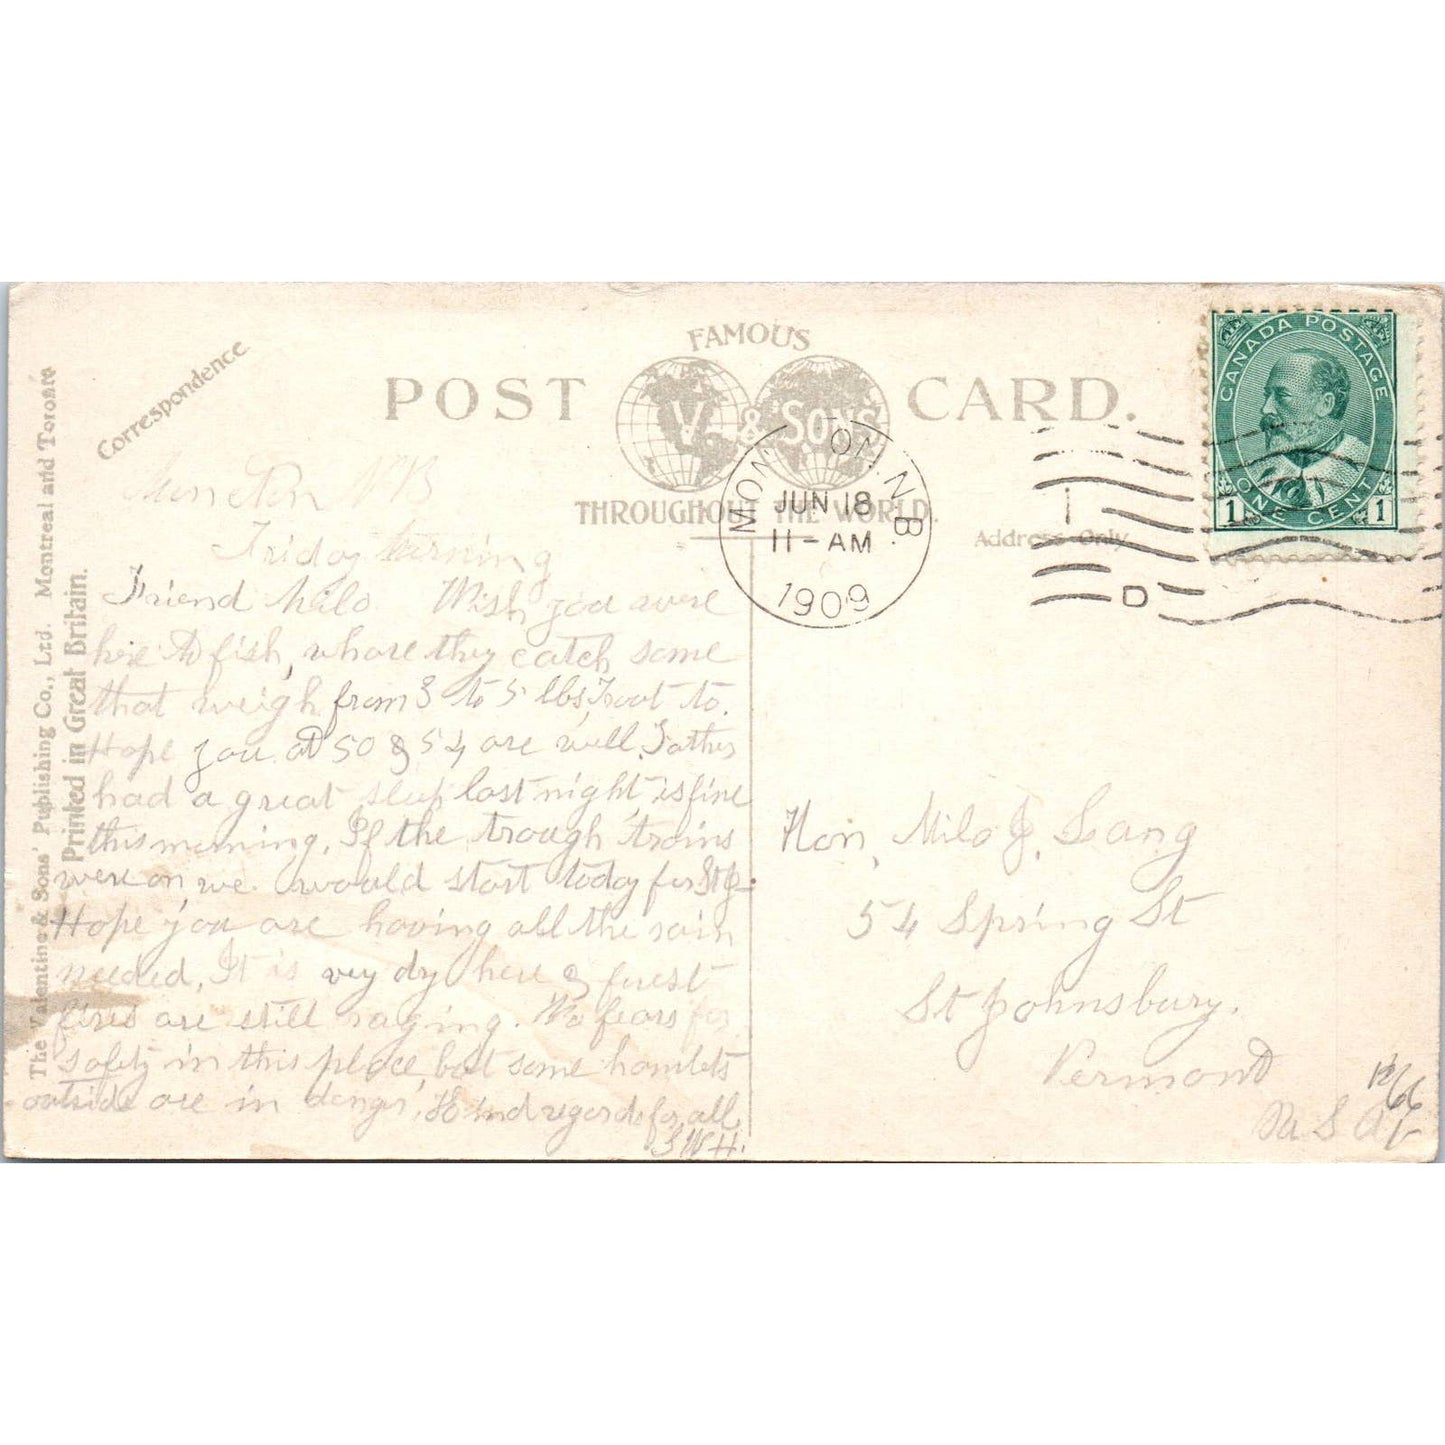 Correspondence
FAMOUS
POST CARD.
V. & SONS
THROUGHOUT THE WORLD.
Address Only
CANADA POSTAGE
1 ONE CENT 1
MONCTON N.B.
JUN 18
11-AM
1909
I
D
The Valentine & Sons' Publishing Co., Ltd. Montreal and Toronto
Printed in Great Britain.
Moncton NB
Friday Morning
Friend Milo Wish you were
here to fish, where they catch some
that weigh from 3 to 5 lbs, Trout to.
Hope you at 50 & 54 are well. Father
had a great sleep last night, is fine
this morning. If the trough trains
were on we would start today for St J.
Hope you are having all the rain
needed. It is very dry here & forest
fires are still raging. No fears for
safety in this place, but some hamlets
outside are in danger. Kind regards for all.
S W H.
Hon. Milo J. Lang
54 Spring St
St Johnsbury.
Vermont
U S A